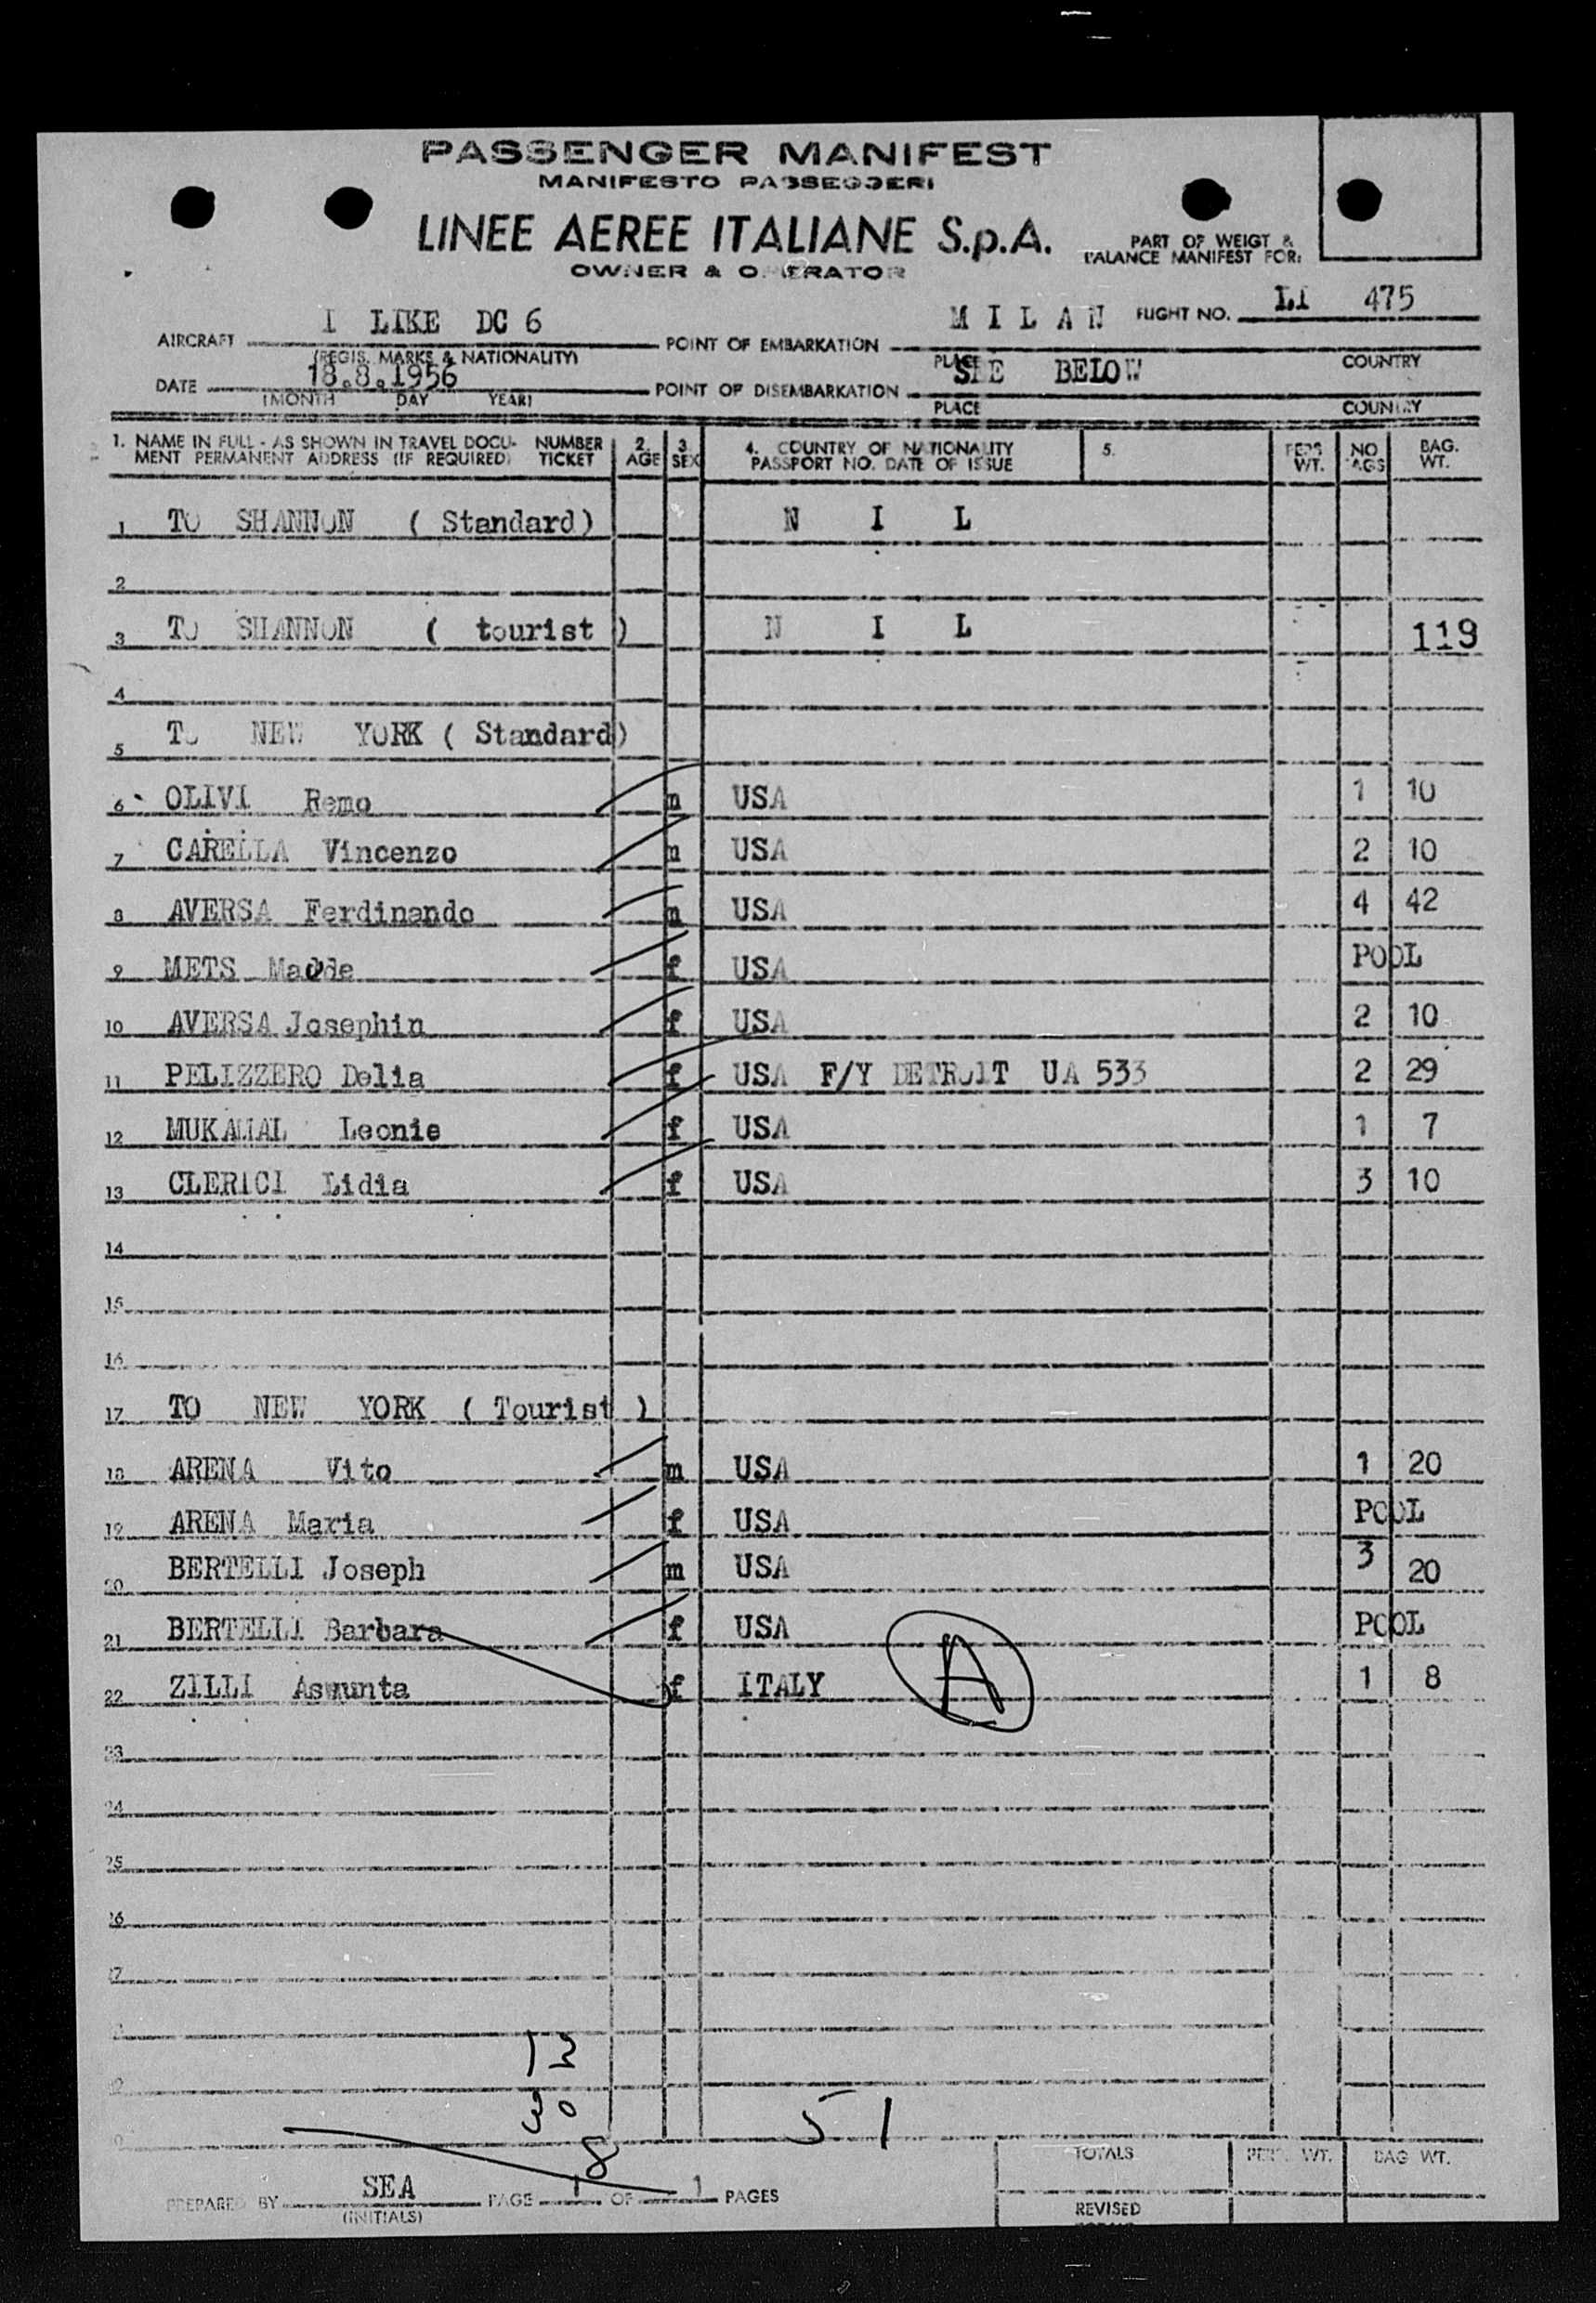 PASSENGER MANIFEST
MANIFESTO PASSEGGERI
LINEE AEREE ITALIANE S.p.A.
OWNER & OPERATOR
PART OF WEIGT &
BALANCE MANIFEST FOR:
AIRCRAFT I LIKE DC 6 POINT OF EMBARKATION M I L A N FLIGHT NO. LI 475
(REGIS. MARKS & NATIONALITY) PLACE COUNTRY
DATE 18.8.1956 POINT OF DISEMBARKATION SEE BELOW
(MONTH DAY YEAR) PLACE COUNTRY
1. NAME IN FULL - AS SHOWN IN TRAVEL DOCU- NUMBER 2. 3 4. COUNTRY OF NATIONALITY 5. PERS NO BAG.
MENT PERMANENT ADDRESS (IF REQUIRED) TICKET AGE SEX PASSPORT NO. DATE OF ISSUE WT. AGS WT.
1 TO SHANNON ( Standard) N I L
2
3 TO SHANNON ( tourist ) N I L 119
4
5 TO NEW YORK ( Standard)
6 OLIVI Remo m USA 1 10
7 CARELLA Vincenzo m USA 2 10
8 AVERSA Ferdinando m USA 4 42
9 METS Madde f USA POOL
10 AVERSA Josephin f USA 2 10
11 PELIZZERO Delia f USA F/Y DETROIT UA 533 2 29
12 MUKAMAL Leonie f USA 1 7
13 CLERICI Lidia f USA 3 10
14
15
16
17 TO NEW YORK ( Tourist )
18 ARENA Vito m USA 1 20
19 ARENA Maria f USA POOL
20 BERTELLI Joseph m USA 3 20
21 BERTELLI Barbara f USA POOL
22 ZILLI Aswunta f ITALY A 1 8
23
24
25
26
27
51
TOTALS PERS. WT. BAG WT.
PREPARED BY SEA PAGE 1 OF 1 PAGES
(INITIALS) REVISED